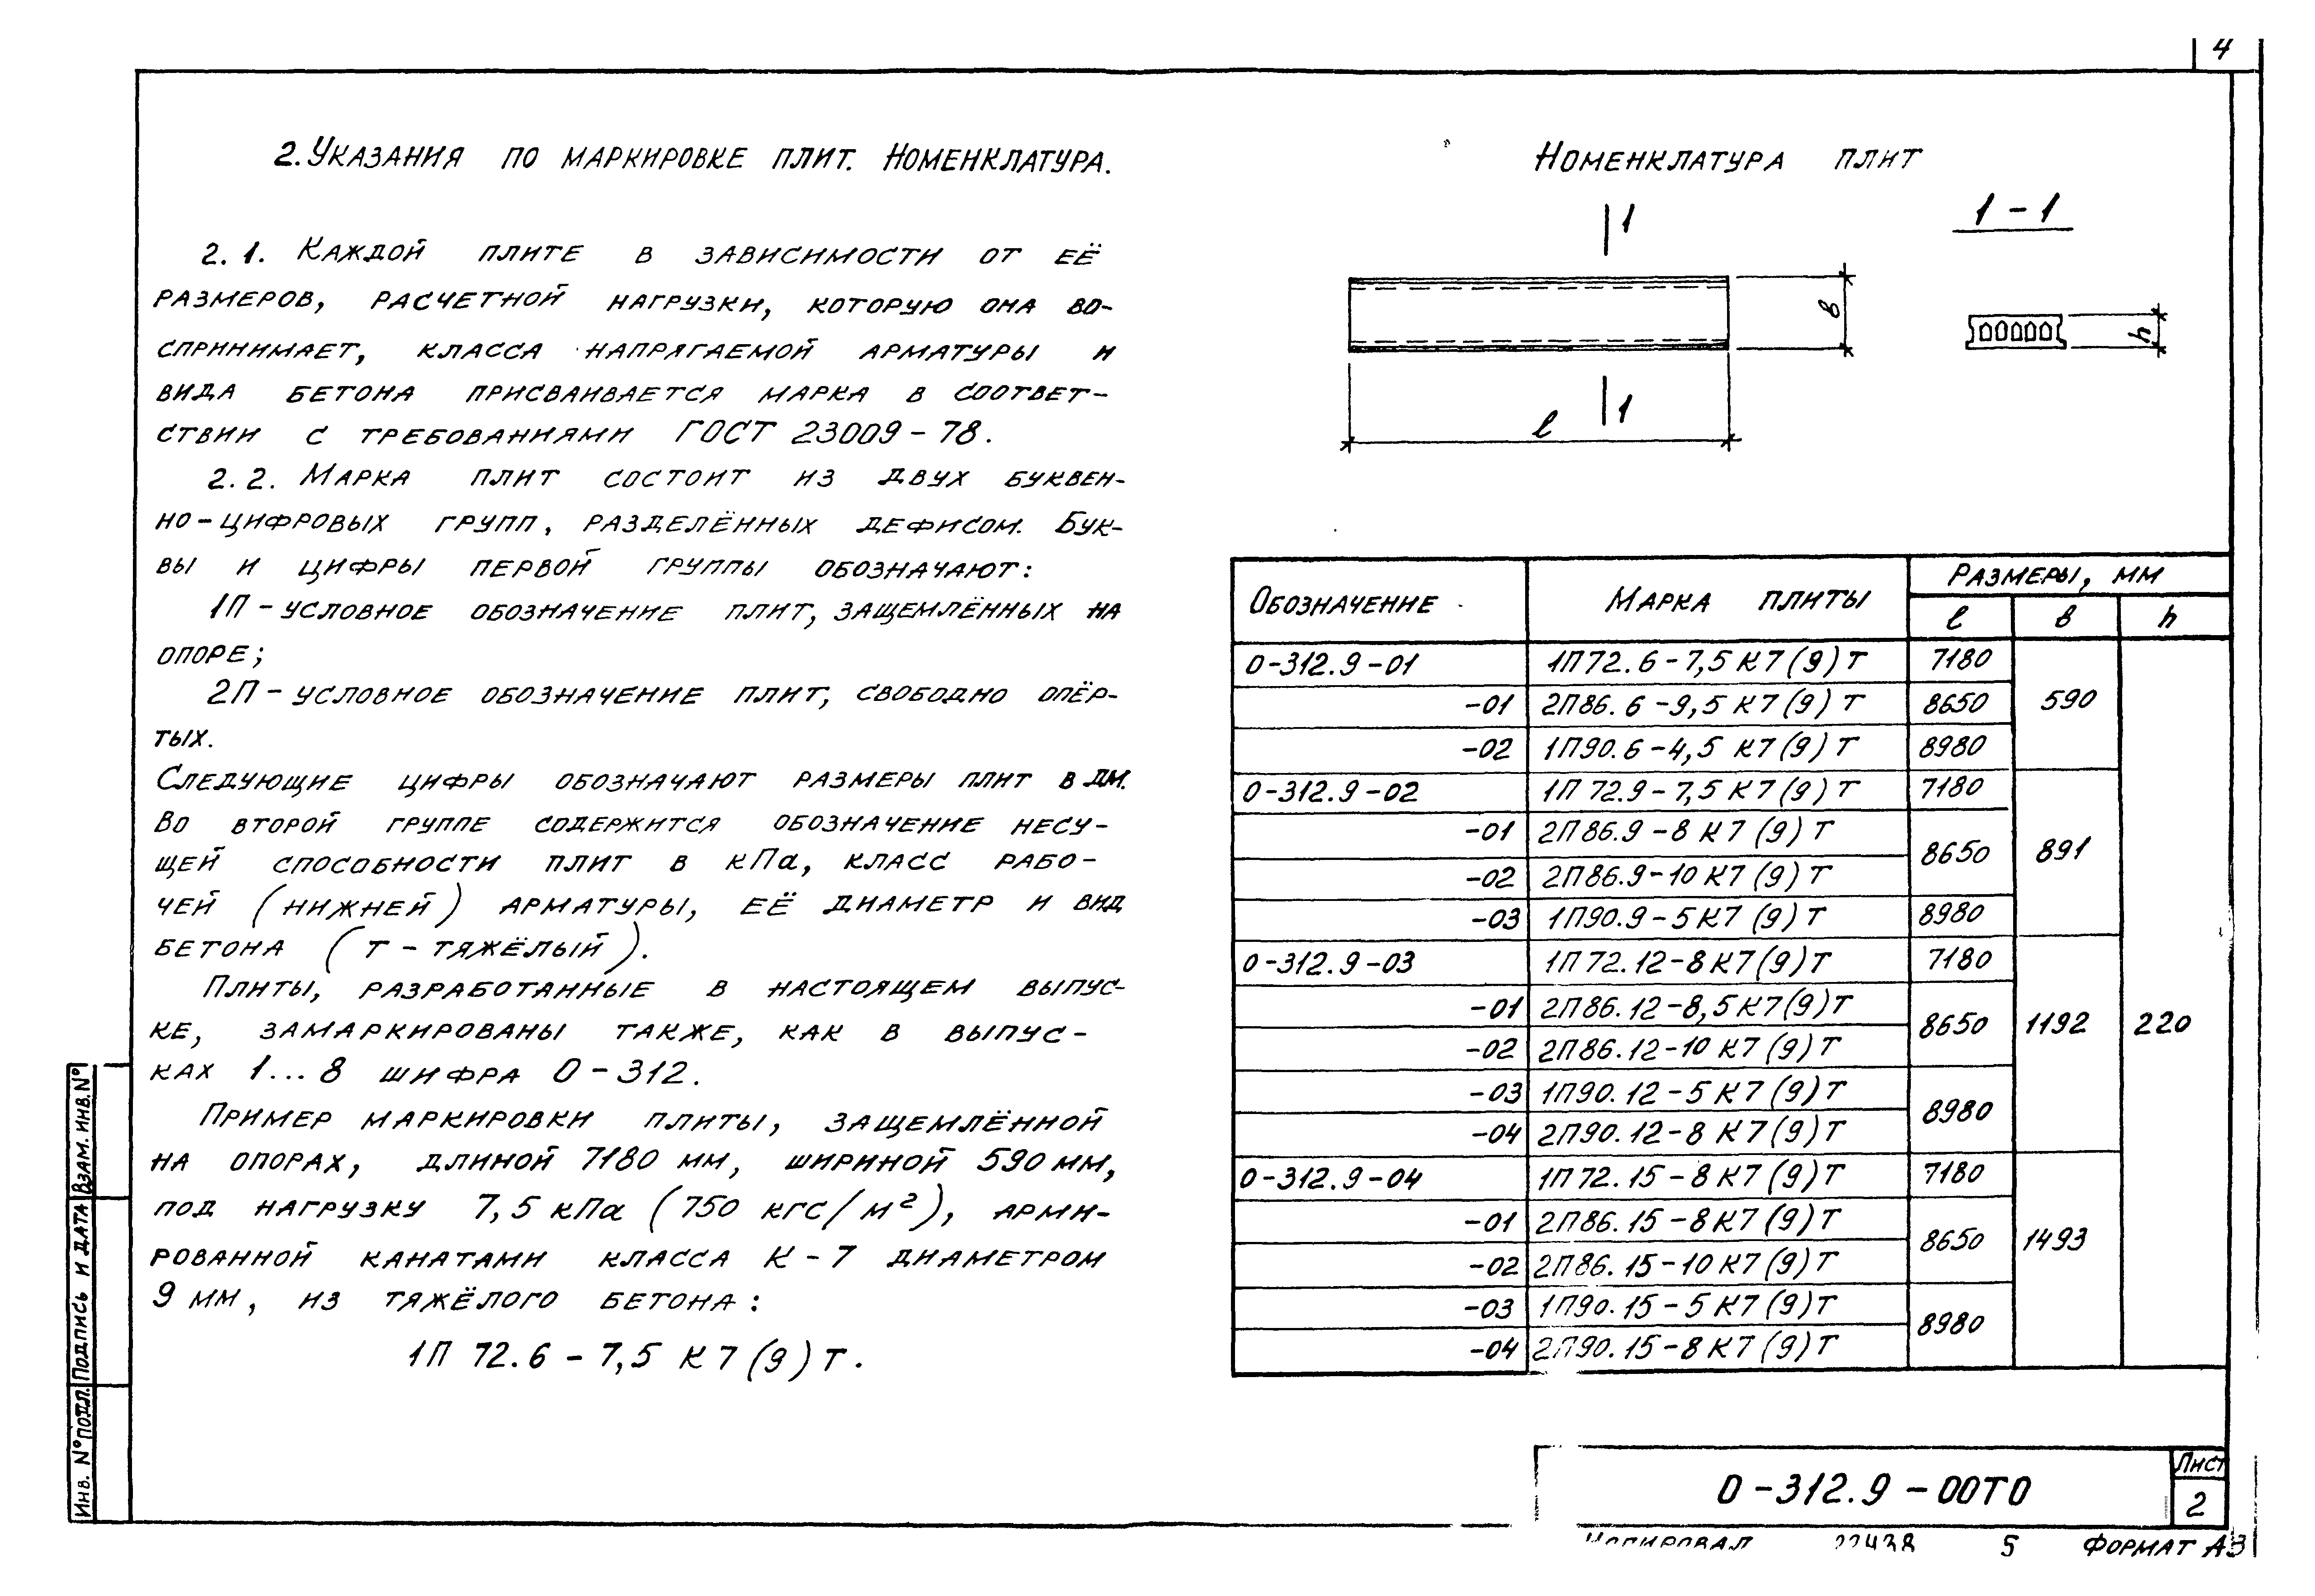 4
2. Указания по маркировке плит. Номенклатура.
2.1. Каждой плите в зависимости от её
размеров, расчетной нагрузки, которую она во-
спринимает, класса напрягаемой арматуры и
вида бетона присваивается марка в соответ-
ствии с требованиями ГОСТ 23009-78.
2.2. Марка плит состоит из двух буквен-
но-цифровых групп, разделённых дефисом. Бук-
вы и цифры первой группы обозначают:
1П - условное обозначение плит, защемлённых на
опоре;
2П - условное обозначение плит, свободно опёр-
тых.
Следующие цифры обозначают размеры плит в дм.
Во второй группе содержится обозначение несу-
щей способности плит в кПа, класс рабо-
чей (нижней) арматуры, её диаметр и вид
бетона (т - тяжёлый).
Плиты, разработанные в настоящем выпус-
ке, замаркированы также, как в выпус-
ках 1...8 шифра 0-312.
Пример маркировки плиты, защемлённой
на опорах, длиной 7180 мм, шириной 590 мм,
под нагрузку 7,5 кПа (750 кгс/м²), арми-
рованной канатами класса К-7 диаметром
9 мм, из тяжёлого бетона:
1П 72.6 - 7,5 К7(9)т.
Номенклатура плит
1
1-1
в
h
1
l
Обозначение Марка плиты Размеры, мм
l в h
0-312.9-01 1П72.6-7,5К7(9)т 7180
-01 2П86.6-9,5К7(9)т 8650 590
-02 1П90.6-4,5К7(9)т 8980
0-312.9-02 1П72.9-7,5К7(9)т 7180
-01 2П86.9-8К7(9)т
8650 891
-02 2П86.9-10К7(9)т
-03 1П90.9-5К7(9)т 8980
0-312.9-03 1П72.12-8К7(9)т 7180
-01 2П86.12-8,5К7(9)т
8650 1192 220
-02 2П86.12-10К7(9)т
-03 1П90.12-5К7(9)т
8980
-04 2П90.12-8К7(9)т
0-312.9-04 1П72.15-8К7(9)т 7180
-01 2П86.15-8К7(9)т
8650 1493
-02 2П86.15-10К7(9)т
-03 1П90.15-5К7(9)т
8980
-04 2П90.15-8К7(9)т
Инв. № подл. Подпись и дата Взам. инв. №
0-312.9-00ТО
Лист
2
Копировал 22438 5 Формат А3